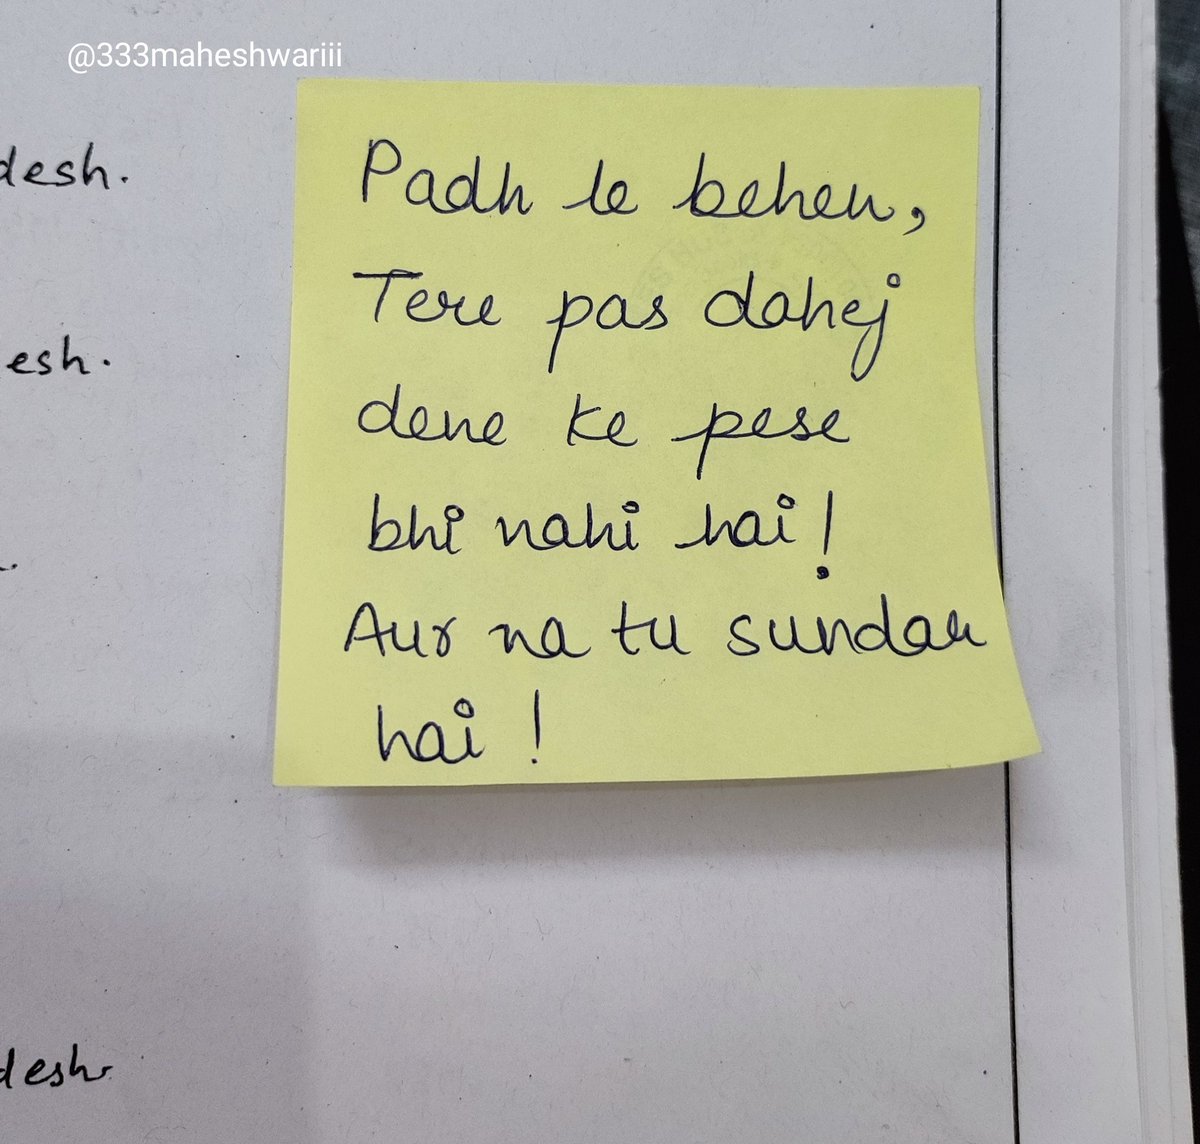 @333maheshwariii
desh.
Padh le behen,
Tere pas dahej
esh.
dene ke pese
bhi nahi hai!
Aur na tu sundar
hai !
desh.